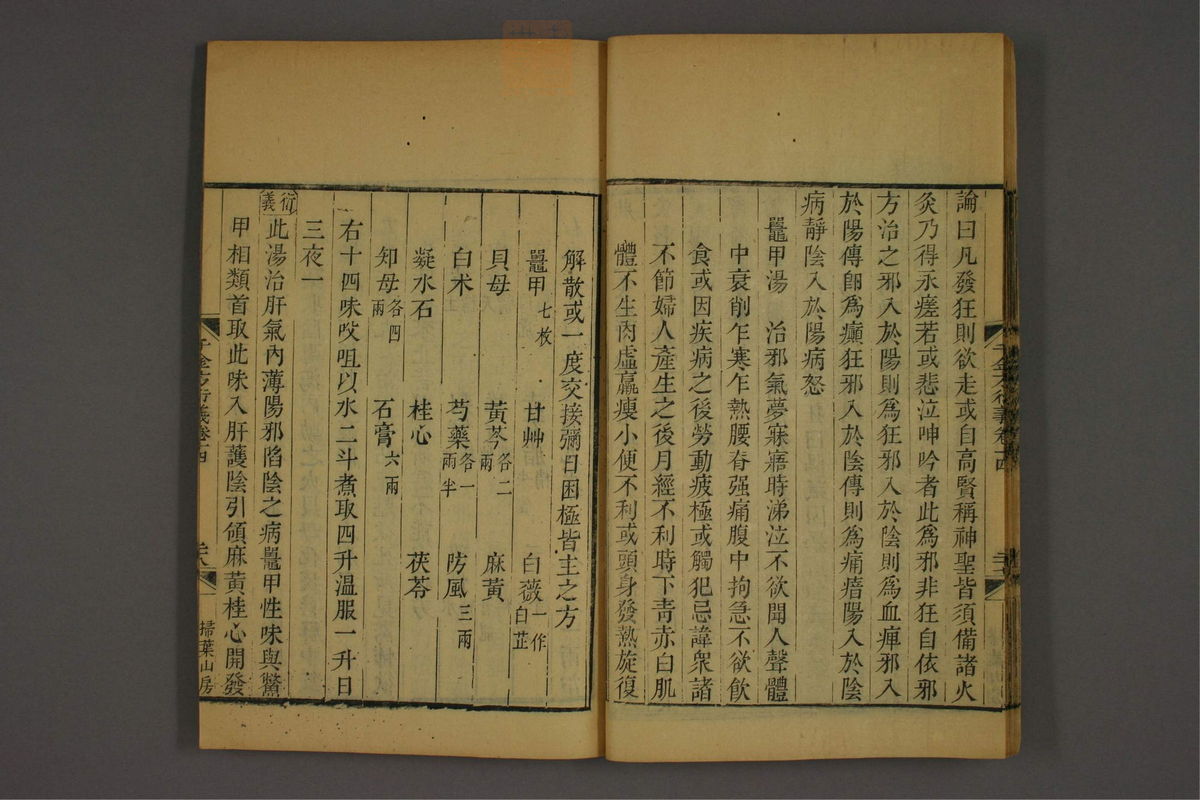 論曰凡發狂則欲走或自高賢稱神聖皆須備諸火
灸乃得永瘥若或悲泣呻吟者此爲邪非狂自依邪
方治之邪入於陽則爲狂邪入於陰則爲血痺邪入
於陽傳卽爲癲狂邪入於陰傳則爲痛瘖陽入於陰
病靜陰入於陽病怒
鼉甲湯 治邪氣夢寐寤時涕泣不欲聞人聲體
中衰削乍寒乍熱腰脊强痛腹中拘急不欲飲
食或因疾病之後勞動疲極或觸犯忌諱衆諸
不節婦人產生之後月經不利時下靑赤白肌
體不生肉虛羸瘦小便不利或頭身發熱旋復
解散或一度交接彌日困極皆主之方
鼉甲七枚 甘艸 白薇一作白芷
貝母 黃芩各二兩 麻黃
白朮 芍藥各一兩半 防風三兩
凝水石 桂心 茯苓
知母各四兩 石膏六兩
右十四味㕮咀以水二斗煮取四升溫服一升日
三夜一
衍義
此湯治肝氣內薄陽邪陷陰之病鼉甲性味與鱉
甲相類首取此味入肝護陰引領麻黃桂心開發
千金方衍義卷十四
掃葉山房